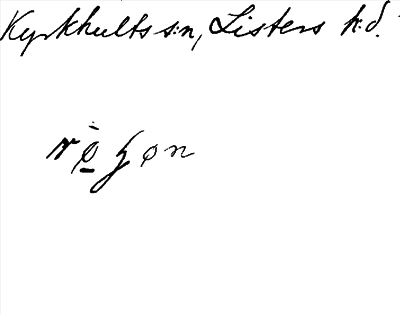 Kyrkhults sn, Listers hd.